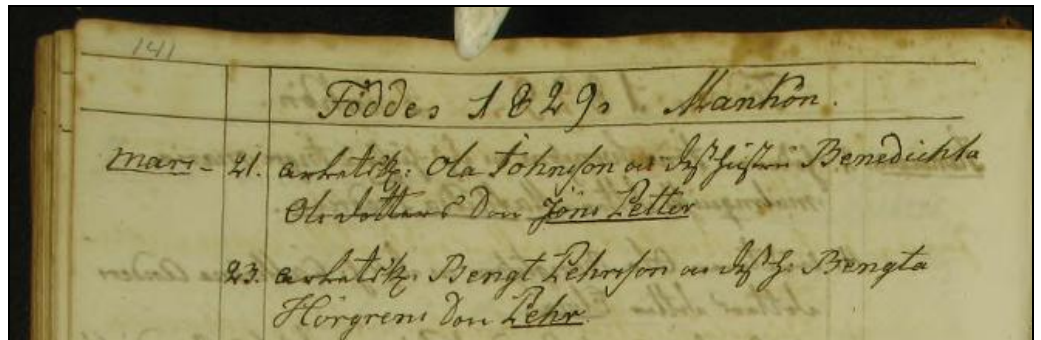 141
Föddes 1829, Mankön.
Mars - 21. arbetsk: Ola Johnsson och deß hustru Benedichta
Olsdotters Son Jöns Petter
23. arbetsk: Bengt Pehrsson och deß h: Bengta
Hörgrens Son Pehr.